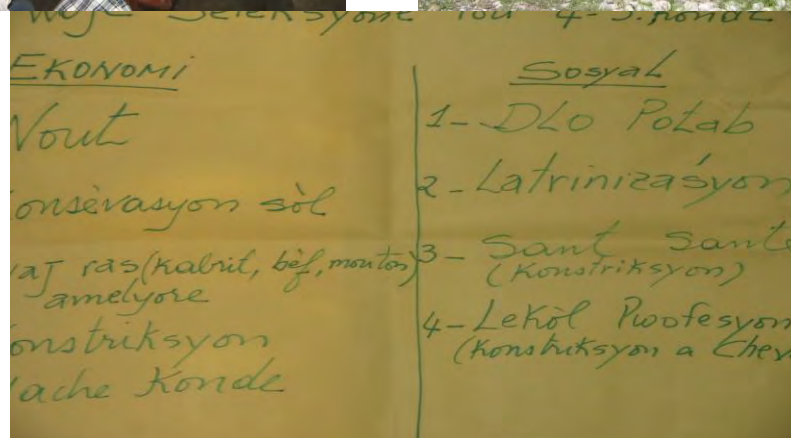 Seleksyone
EKONOMi
Wout
onsèvasyon sòl
aj ras (kabrit, bèf, mouton)
amelyore
onstriksyon
ache Konde
Sosyal
1- DLO Potab
2- Latrinizasyon
3- Sant Sante
(Konstriksyon)
4- Lekòl Pwofesyon
(Konstriksyon a Chey